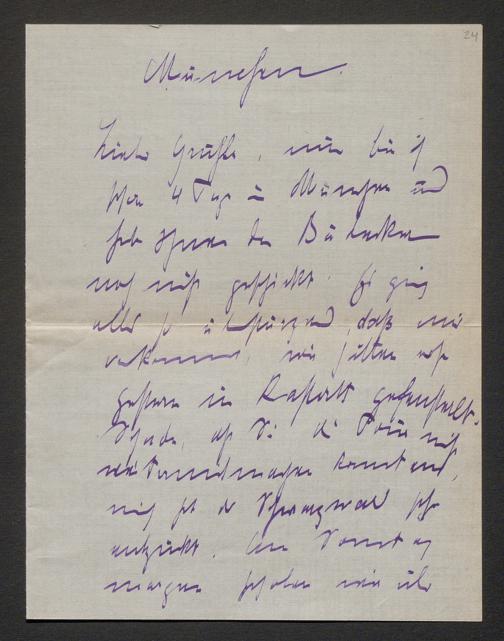 24
München.
Liebe Gräfin, nun bin ich
schon 4 Tage in München und
habe Ihnen den Bädecker
noch nicht geschickt. Es ging
alles so , daß wir
, wir hätten erst
gestern in Rastatt
Schade, daß Sie die Tour nicht
mitmachen konnten,
mich hat der Schwarzwald sehr
entzückt. Am Sonntag
morgen wir